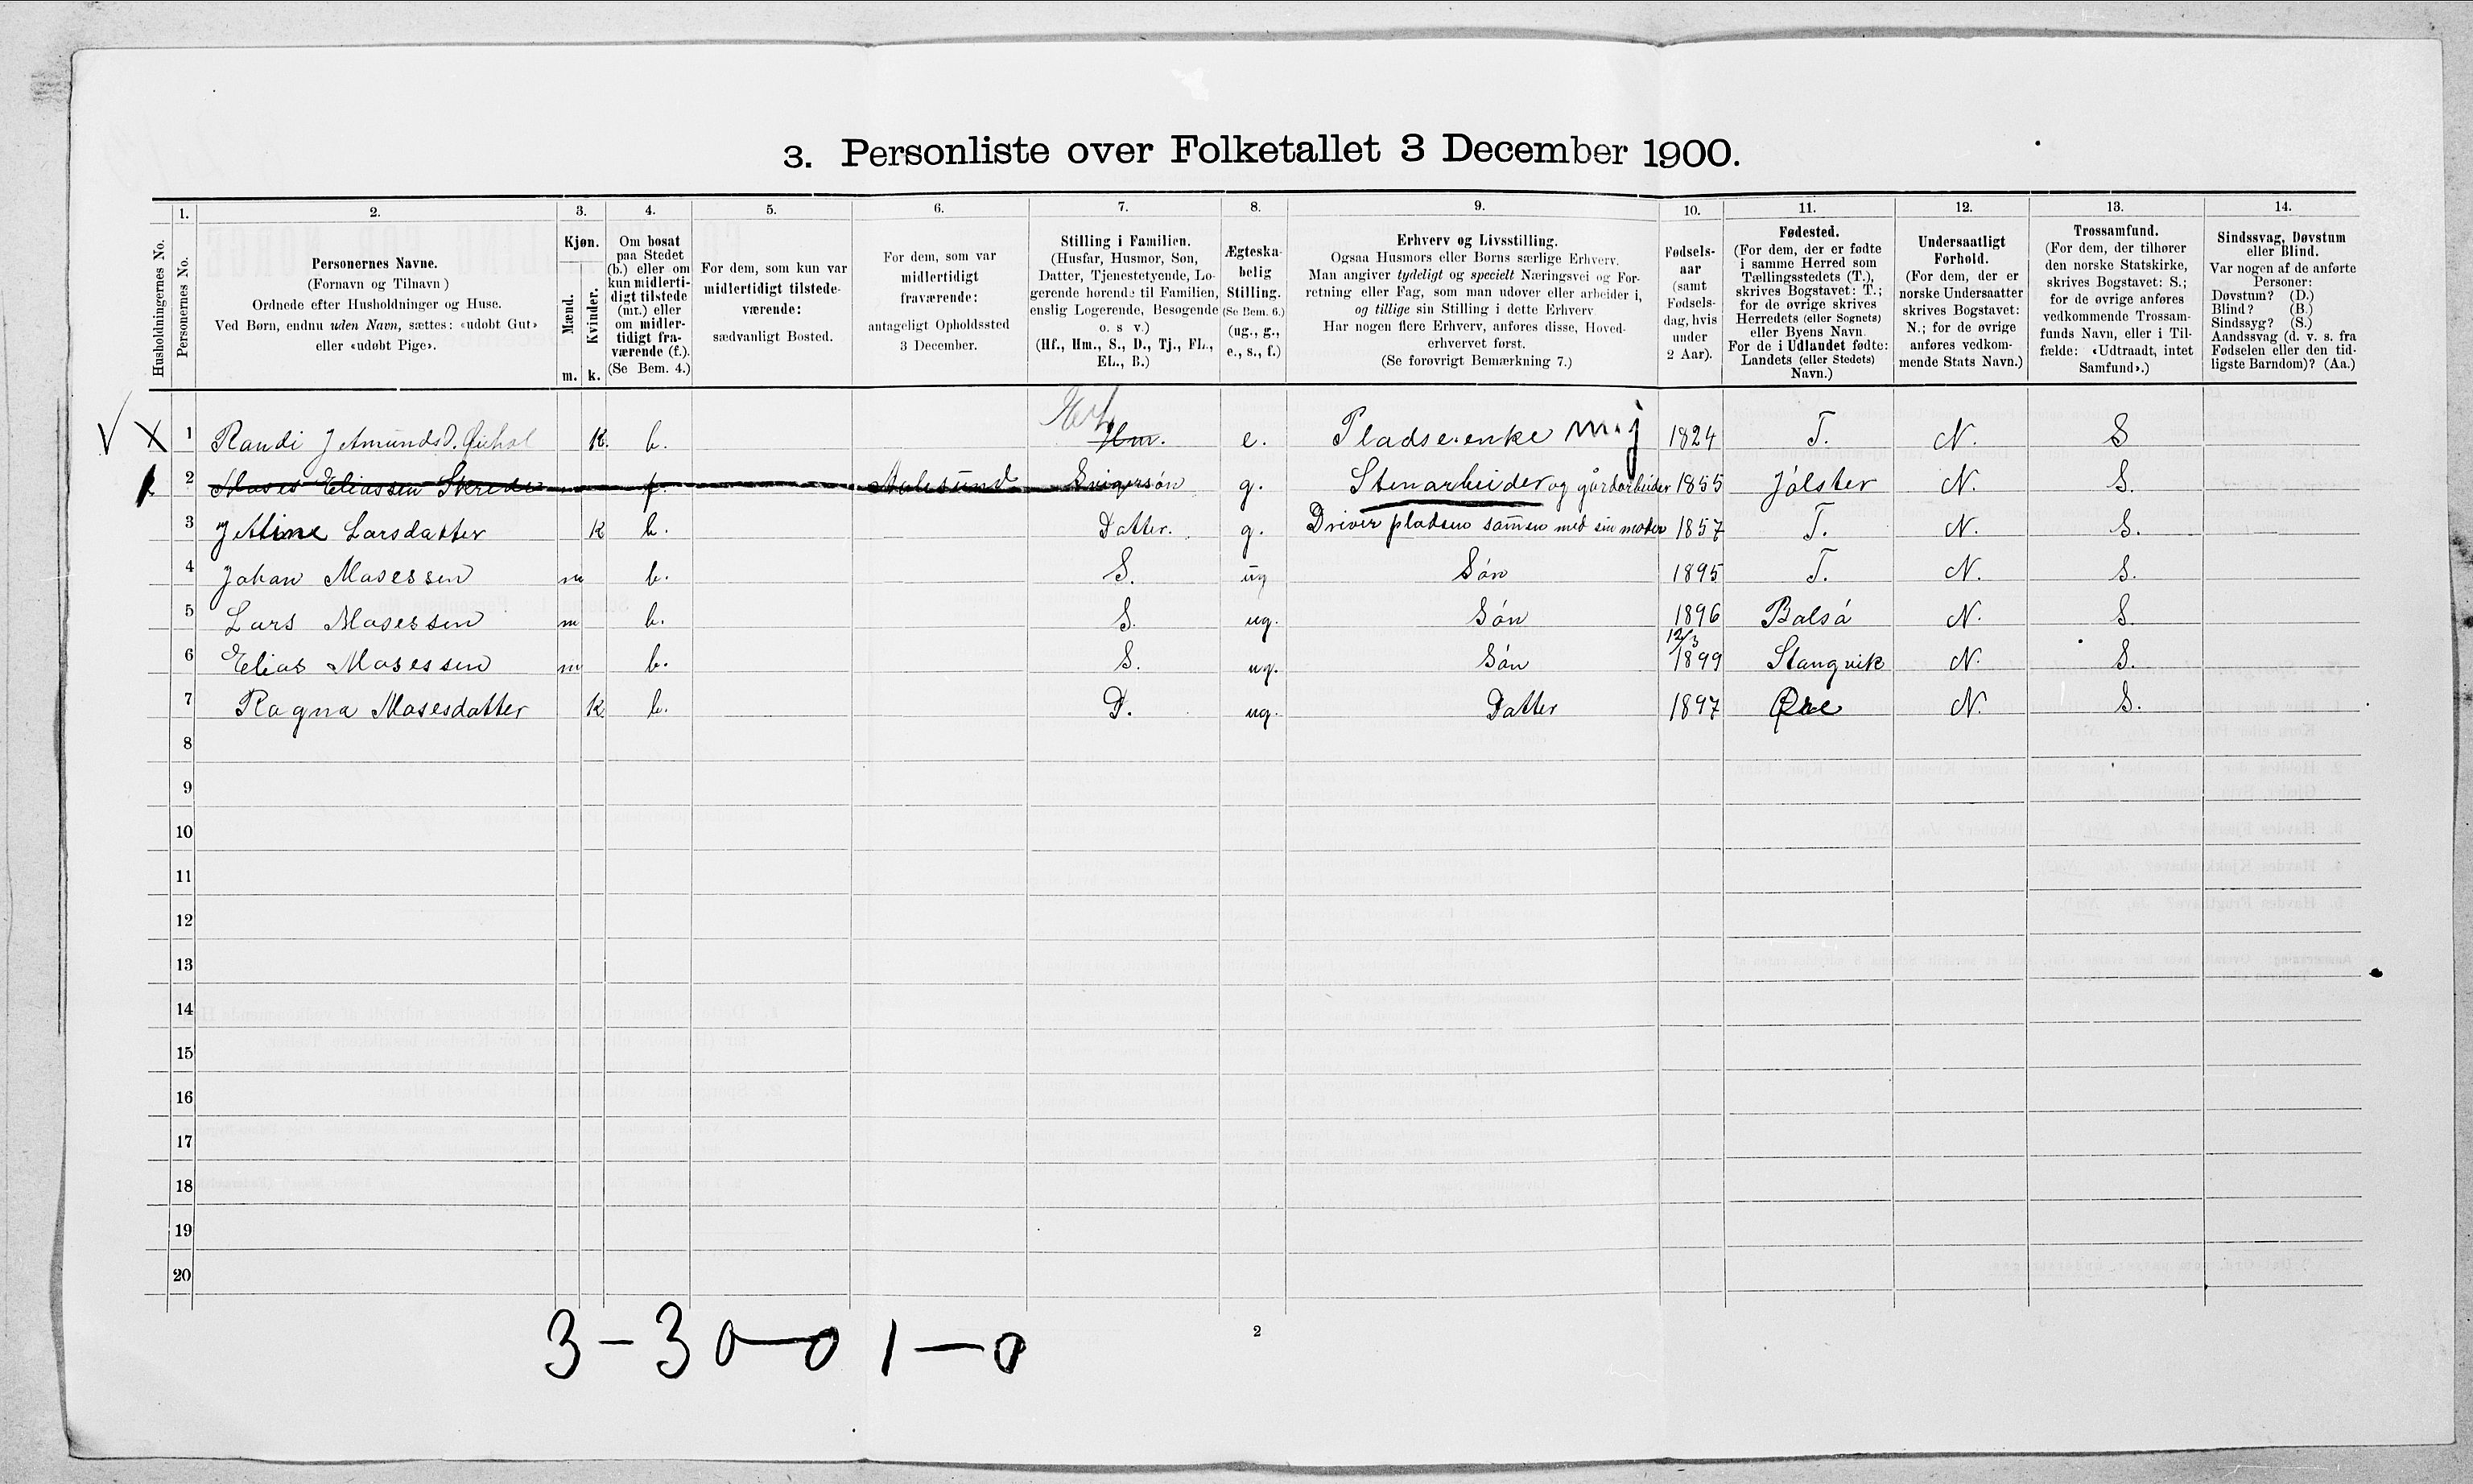 3. Personliste over Folketallet 3 December 1900.
1. 2. 3. 4. 5. 6. 7. 8. 9. 10. 11. 12. 13. 14.
Husholdningernes No.
Personernes No.
Personernes Navne.
(Fornavn og Tilnavn)
Ordnede efter Husholdninger og Huse.
Ved Børn, endnu uden Navn, sættes: «udøbt Gut»
eller «udøbt Pige».
Kjøn.
Mænd.
Kvinder.
m. k.
Om bosat
paa Stedet
(b.) eller om
kun midlerti-
digt tilstede
(mt.) eller
om midler-
tidigt fra-
værende (f.).
(Se Bem. 4.)
For dem, som kun var
midlertidigt tilstede-
værende:
sædvanligt Bosted.
For dem, som var
midlertidigt
fraværende:
antageligt Opholdssted
3 December.
Stilling i Familien.
(Husfar, Husmor, Søn,
Datter, Tjenestetyende, Lo-
gerende hørende til Familien,
enslig Logerende, Besøgende
o. s v.)
(Hf., Hm., S., D., Tj., FL.,
EL., B.)
Ægteska-
belig
Stilling.
(Se Bem. 6.)
(ug., g.,
e., s., f.)
Erhverv og Livsstilling.
Ogsaa Husmors eller Børns særlige Erhverv.
Man angiver tydeligt og specielt Næringsvei og For-
retning eller Fag, som man udøver eller arbeider i,
og tillige sin Stilling i dette Erhverv
Har nogen flere Erhverv, anføres disse, Hoved-
erhvervet først.
(Se forøvrigt Bemærkning 7.)
Fødsels-
aar
(samt
Fødsels-
dag, hvis
under
2 Aar).
Fødested.
(For dem, der er fødte
i samme Herred som
Tællingsstedets (T.),
skrives Bogstavet: T.;
for de øvrige skrives
Herredets (eller Sognets)
eller Byens Navn.
For de i Udlandet fødte:
Landets (eller Stedets)
Navn.)
Undersaatligt
Forhold.
(For dem, der er
norske Undersaatter
skrives Bogstavet:
N.; for de øvrige
anføres vedkom-
mende Stats Navn.)
Trossamfund.
(For dem, der tilhører
den norske Statskirke,
skrives Bogstavet: S.;
for de øvrige anføres
vedkommende Trossam-
funds Navn, eller i Til-
fælde: «Udtraadt, intet
Samfund».)
Sindssvag, Døvstum
eller Blind.
Var nogen af de anførte
Personer:
Døvstum? (D.)
Blind? (B.)
Sindssyg? (S.)
Aandssvag (d. v. s. fra
Fødselen eller den tid-
ligste Barndom)? (Aa.)
1 Randi J Amunds D. k. b. Hm. e. Pladseenke m. j 1824 T. N. S
2 Moses Eliassen Skrede f. Aalesund Svigersøn g. Stenarbeider og gårdarbeider 1855 Jølster N. S.
3 Jettine Larsdatter k b. Datter. g. Driver pladsen sammen med sin moder 1857 T. N. S.
4 Johan Mosessen m b. S. ug Søn 1895 T. N. S.
5 Lars Mosessen m b. S. ug. Søn 1896 Bolsø N. S.
6 Elias Mosessen m b. S. ug. Søn 12/3 1899 Stangvik N. S.
7 Ragna Mosesdatter k b. D. ug. Datter 1897 Øre N. S.
8
9
10
11
12
13
14
15
16
17
18
19
20
3 – 3 0 – 0 1 – 0
2